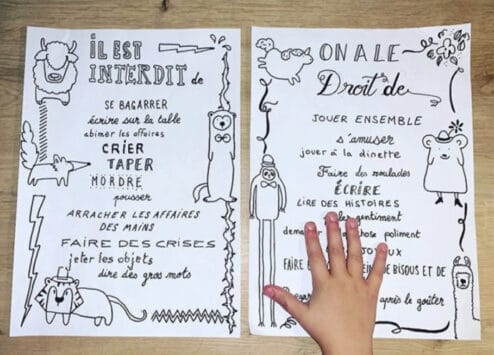 iL EST
INTERDIT de
SE BAGARRER
écrire sur la table
abimer les affaires
CRIER
TAPER
MORDRE
pousser
ARRACHER LES AFFAIRES
DES MAINS
FAIRE DES CRISES
jeter les objets
dire des gros mots
ON A LE
Droit de
JOUER ENSEMBLE
s'amuser
jouer à la dinette
Faire des roulades
ÉCRIRE
LIRE DES HISTOIRES
poliment
JOYEUX
FAIRE
DE BISOUS ET DE
après le goûter